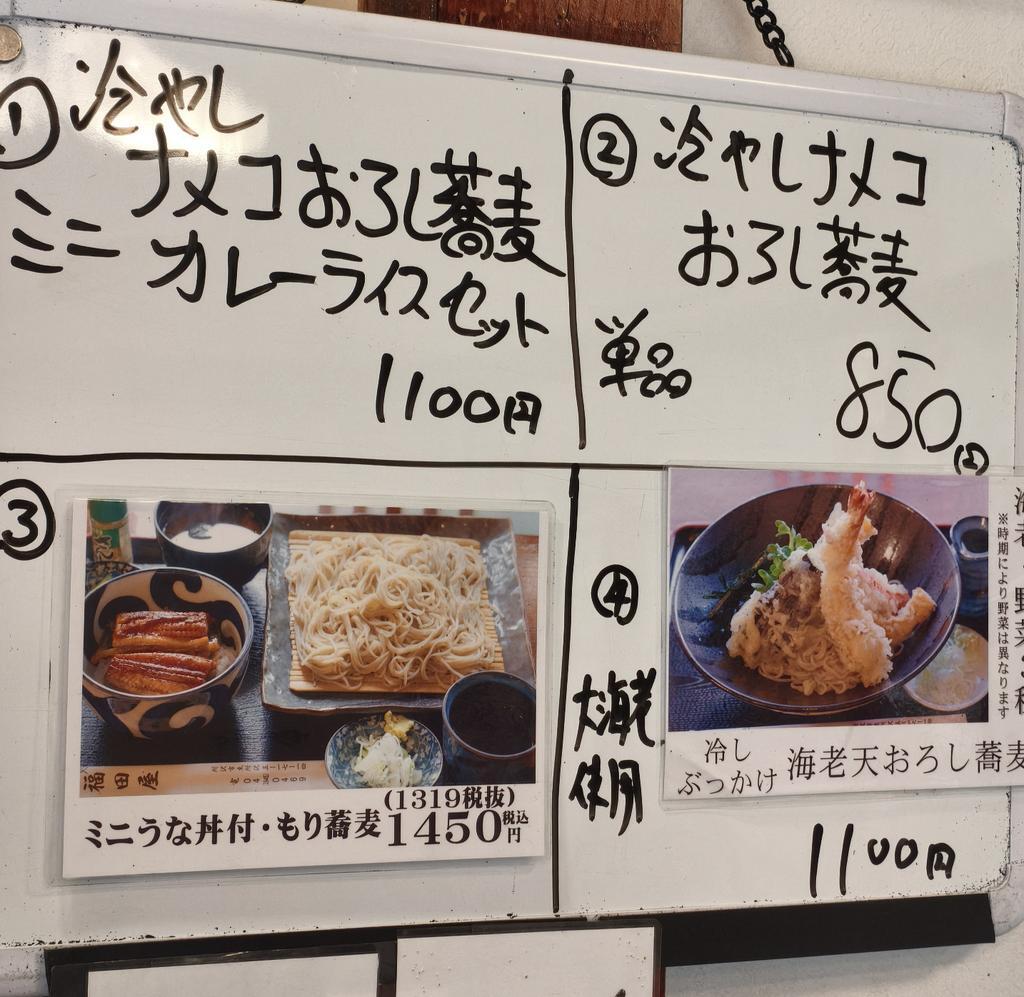 ① 冷やし
ナメコおろし蕎麦
ミニ カレーライスセット
1100円
② 冷やしナメコ
おろし蕎麦
単品
850円
③
福田屋
(1319税抜)
ミニうな丼付・もり蕎麦 1450税込円
④
大海老
使用
※時期により野菜は異なります
冷し
ぶっかけ 海老天おろし蕎麦
1100円